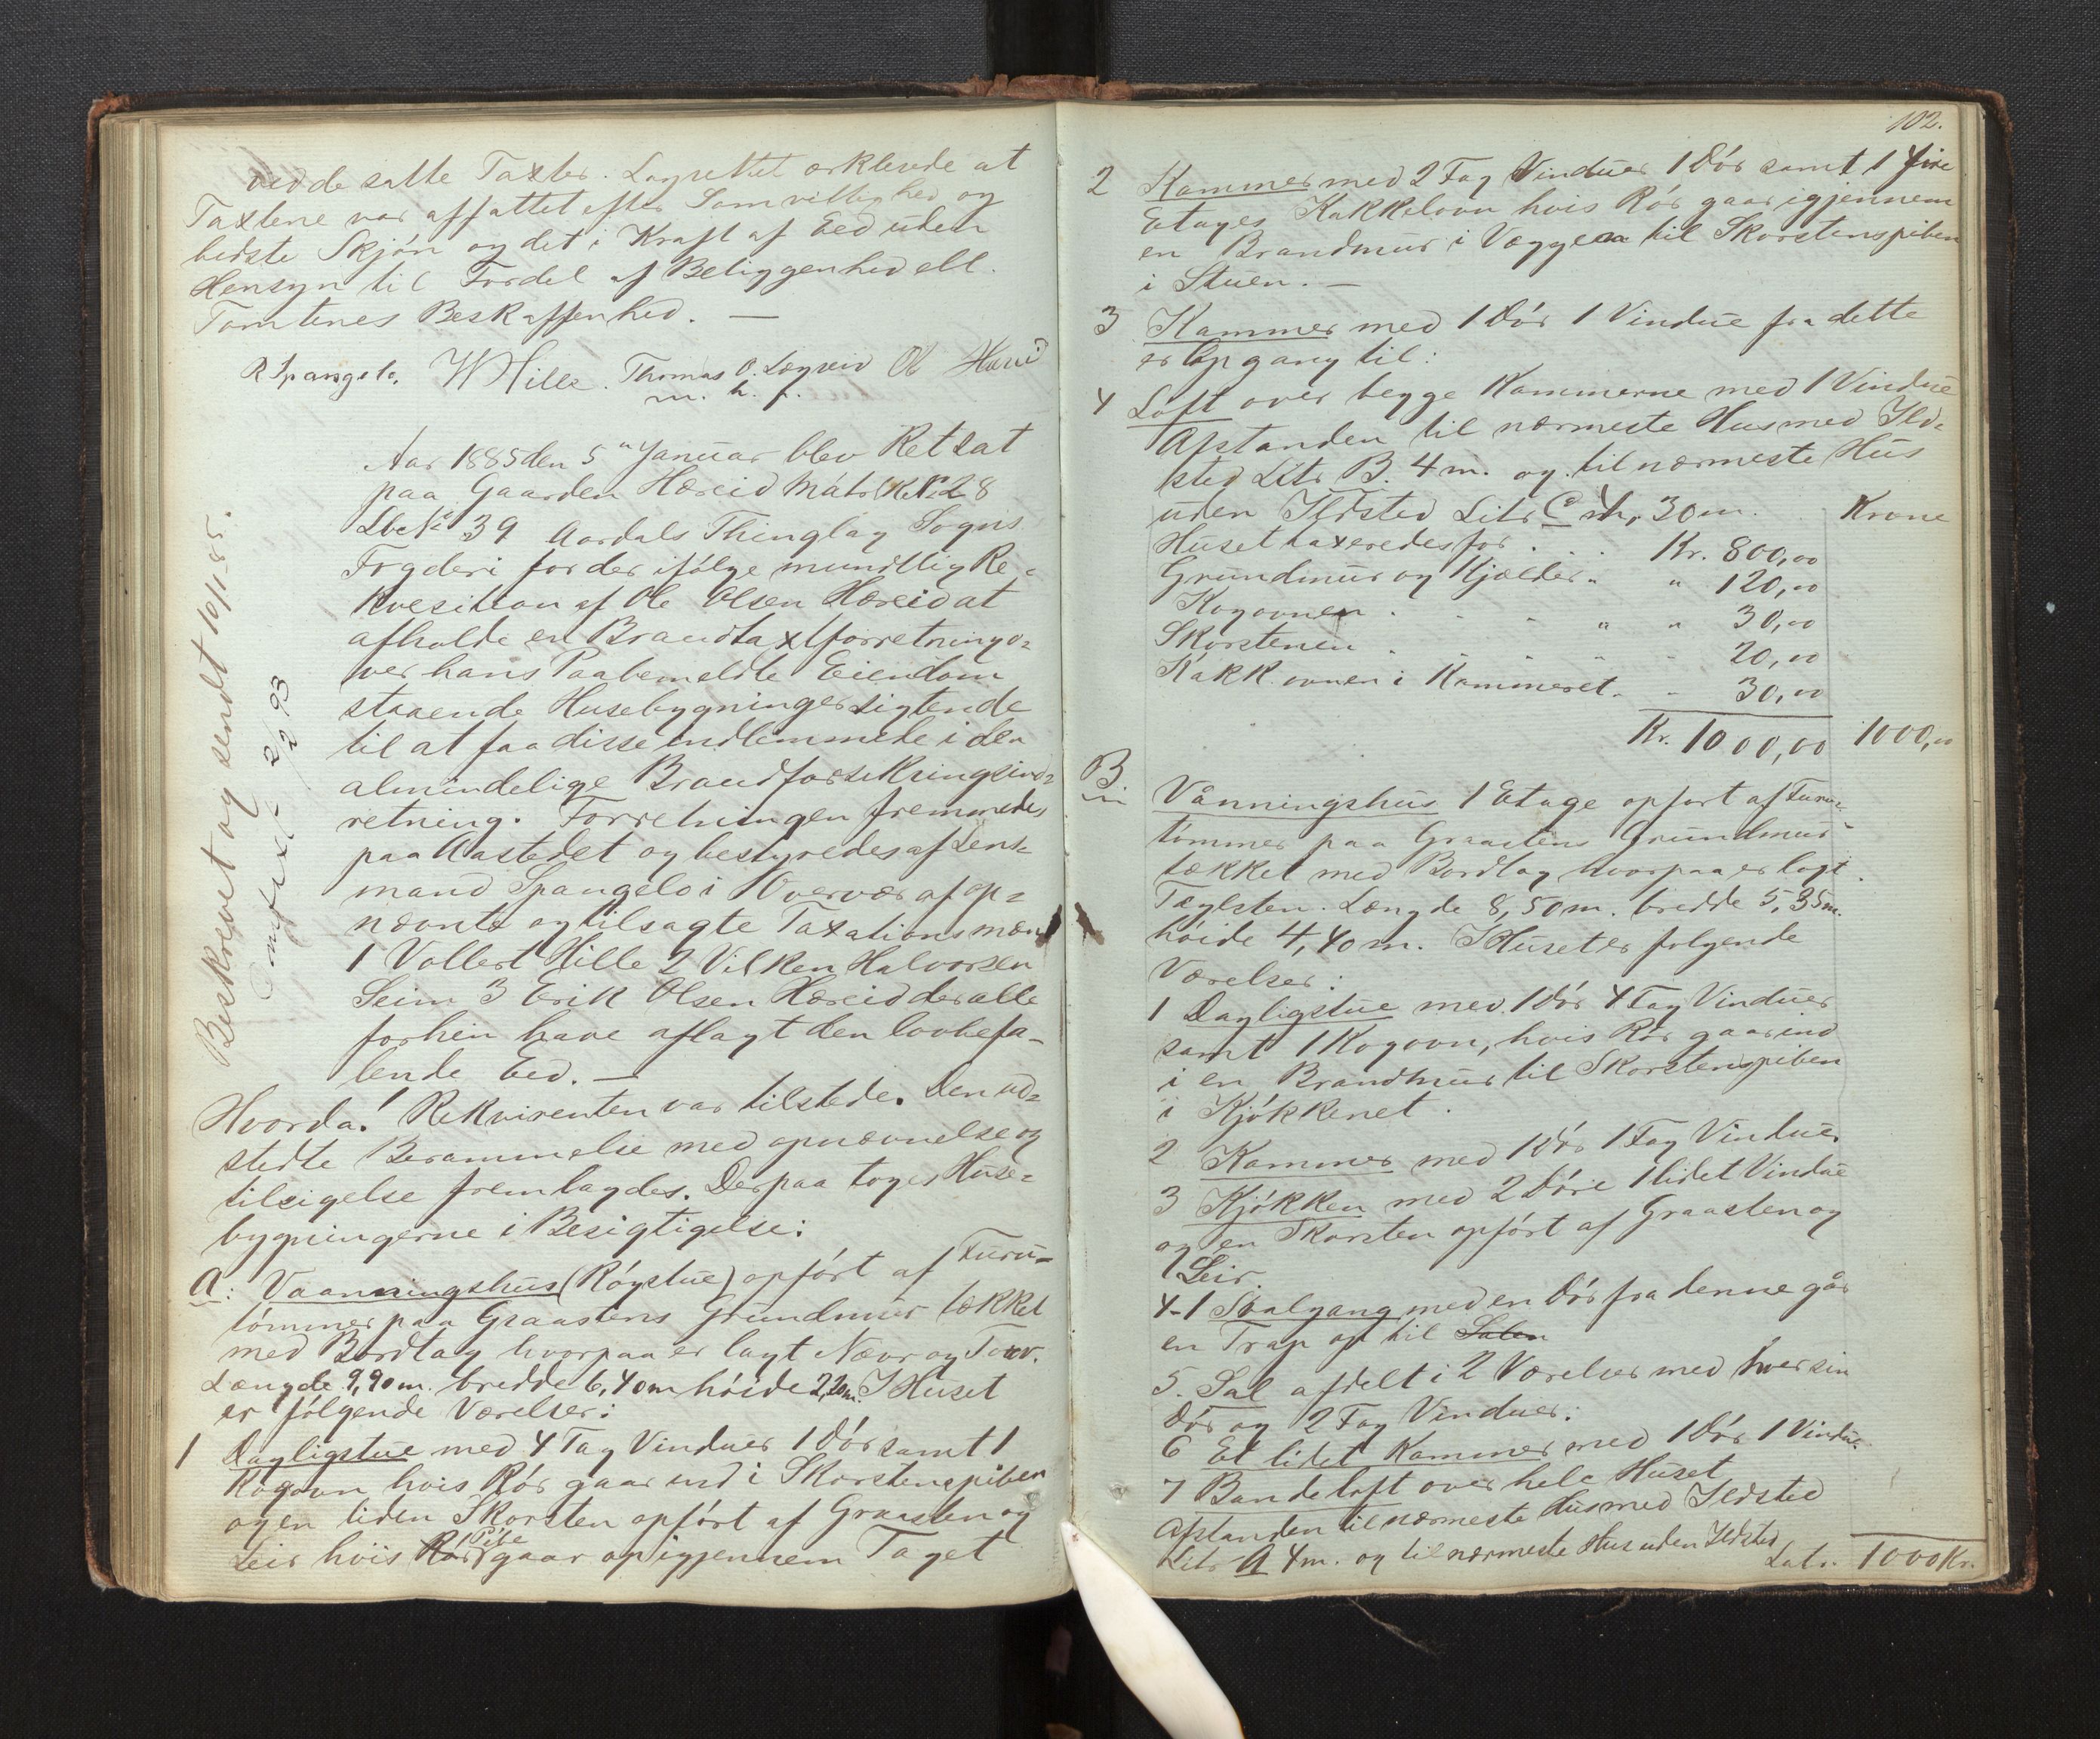 ved de satte Taxter. Lagrettet erklerede at
Taxtene var affattet efter Samvittighed og
bedste Skjøn og det i Kraft af Eed uden
Hensyn til Fordel af Beliggenhed ell.
Tomtenes Beskaffenhed. —
R Spangelo. W Hille. Thomas O. Legreid Ol Hæreid
m. h. p.
Aar 1885 den 5" Januar blev Ret sat
paa Gaarden Hæreid Matr No 28
Lbe No 39 Aardals Thinglag Sogns
Fogderi for der ifølge mundtlig Re-
kvesition af Ole Olsen Hæreid at
afholde en Brandtaxtforretning o-
ver hans Paabemeldte Eiendom
staaende Husebygninger sigtende
til at faa disse indlemmede i den
almindelige Brandforsikringsind-
retning. Forretningen fremmedes
paa Aastedet og bestyredes af Lens-
mand Spangelo i Overvær af op-
nævnte og tilsagte Taxationsmænd
1 Vollert Hille 2 Vilken Halvorsen
Seim 3 Erik Olsen Hæreid der alle
forhen have aflagt den lovbefa-
lende Eed. —
Hvorda! Rekvirenten var tilstede. Den ud-
stedte Berammelse med opnævnelse og
tilsigelse fremlagdes. Derpaa toges Huse-
bygningerne i Besigtigelse:
A: Vaanningshus (Røgstue) opført af Furu-
tømmer paa Graastens Grundmur tækket
med Bordtag hvorpaa er lagt Næver og Torv.
Længde 9,90 m. bredde 6,40 m høide 2,20 m. I Huset
er følgende Værelser:
1 Dagligstue med 4 Fag Vinduer 1 Dør samt 1
Kogovn hvis Rør gaar ind i Skorstenspiben
og en liden Skorsten opført af Graasten og
Leir hvis Rør Pibe gaar op igjennem Taget
Beskrevet og sendt 16/1-85.
Omtaxt 2/2 93
102.
2 Kammer med 2 Fag Vinduer 1 Dør samt 1 fire
Etages Kakkelovn hvis Rør gaar igjennem
en Brandmur i Væggen til Skorstenspiben
i Stuen. —
3 Kammer med 1 Dør 1 Vindue fra dette
er Opgang til:
4 Loft over begge Kammerne med 1 Vindue
Afstanden til nærmeste Hus med Ild-
sted Litr B. 4 m. og til nærmeste Hus
uden Ildsted Litr C 30 m. Krone
Huset taxeredes for . . . Kr. 800,00
Grundmur og Kjælder " " 120,00
Kogovnen . . . " " 30,00
Skorstenen . . . . . 20,00
Kakk.ovnen i Kammeret . . 30,00
Kr. 1000,00 1000,00
B.
Vånningshus 1 Etage opført af Furu-
tømmer paa Graastens Grundmur
tækket med Bordtag hvorpaa er lagt
Taglsten. Længde 8,50 m. bredde 5,35 m.
høide 4,40 m. I Huset er følgende
Værelser:
1 Dagligstue med 1 Dør 4 Fag Vinduer
samt 1 Kogovn, hvis Rør gaar ind
i en Brandmur til Skorstenspiben
i Kjøkkenet.
2 Kammer med 1 Dør 1 Fag Vinduer
3 Kjøkken med 2 Døre 1 lidet Vindue
og en Skorsten opført af Graasten og
Leir.
4-1 Svalgang med en Dør fra denne går
en Trap op til Salen
5. Sal afdelt i 2 Værelser med hver sin
Dør og 2 Fag Vinduer.
6 Et lidet Kammer med 1 Dør 1 Vindue
7 Bandeloft over hele Huset
Afstanden til nærmeste Hus med Ildsted
Litr A 4 m. og til nærmeste Hus uden Ildsted
Latr. 1000 Kr.